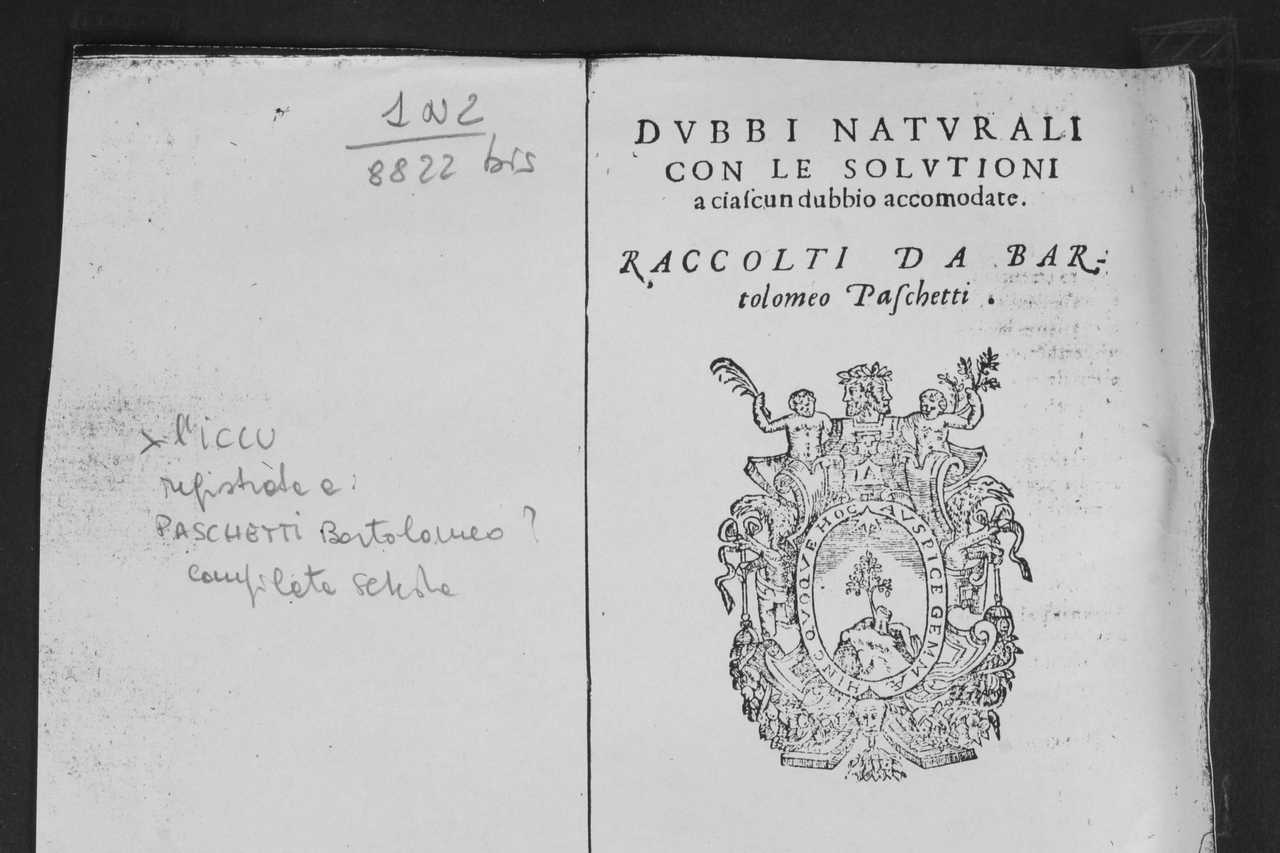 1 N 2
8822 bis
l'ICCU
registrate a:
PASCHETTI Bartolomeo ?
compilata scheda
DVBBI NATVRALI
CON LE SOLVTIONI
a ciaſcun dubbio accomodate.
RACCOLTI DA BAR-
tolomeo Paſchetti .
HINC QVOQVE HOC AVSPICE GEMMÆ